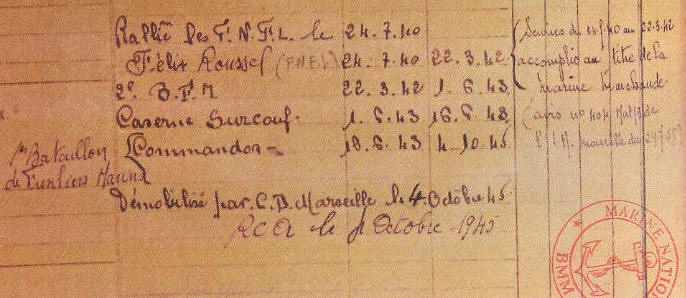 Rallié aux F.N.F.L. le 24.7.40
Félix Roussel (FNFL) 24.7.40 22.3.42
2e B.F.M 22.3.42 1.6.43
Caserne Surcouf. 1.6.43 16.6.43
1er Bataillon de Fusiliers Marins
Commandos 16.6.43 4.10.45
Démobilisé par C.D. Marseille le 4 Octobre 45
RCA le Octobre 1945
Services du 40 au 22.3.42
accomplis au titre de la
Marine Marchande
(avis n°
MARINE NATIO
BM